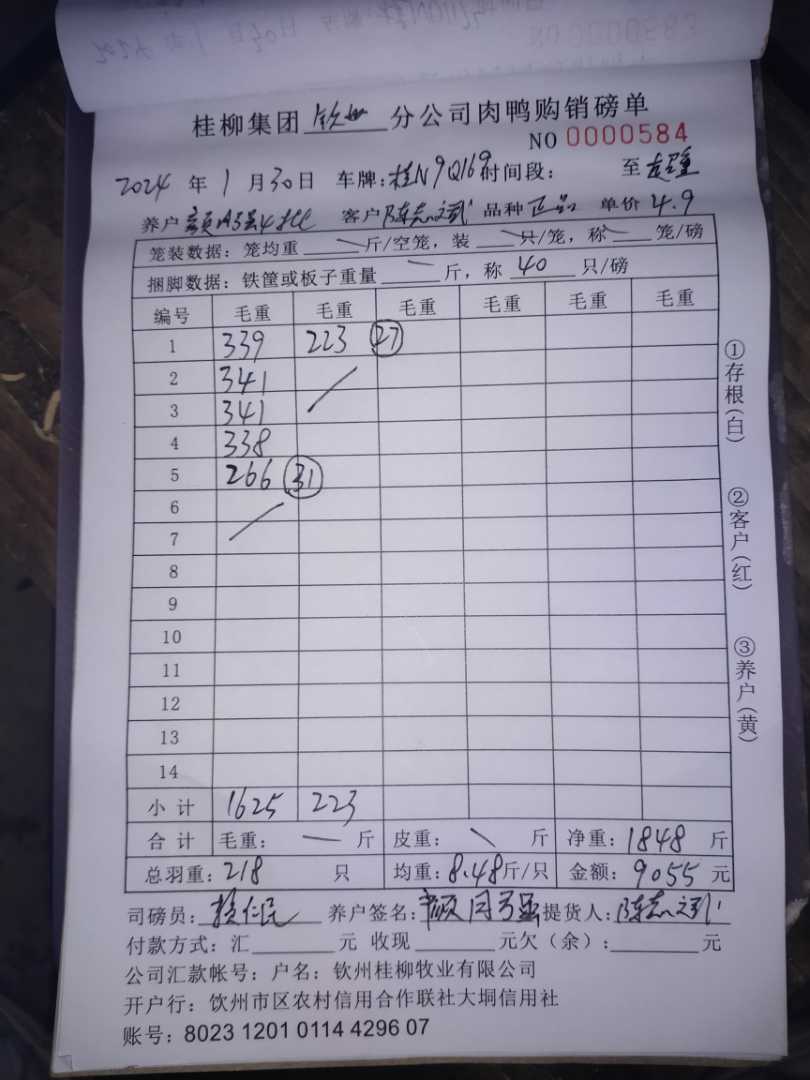 桂柳集团 钦州 分公司肉鸭购销磅单
NO 0000584
2024 年 1 月 30 日 车牌: 桂N9Q169 时间段: 至
养户 4批 客户 陈志 品种 正品 单价 4.9
笼装数据: 笼均重 斤/空笼, 装 只/笼, 称 笼/磅
捆脚数据: 铁筐或板子重量 斤, 称 40 只/磅
编号 毛重 毛重 毛重 毛重 毛重 毛重
1 339 223 27
2 341
3 341
4 338
5 266 31
6
7
8
9
10
11
12
13
14
小计 1625 223
合计 毛重: 斤 皮重: 斤 净重: 1848 斤
总羽重: 218 只 均重: 8.48 斤/只 金额: 9055 元
司磅员: 仁民 养户签名: 提货人: 陈志
付款方式: 汇 元 收现 元欠(余): 元
公司汇款帐号: 户名: 钦州桂柳牧业有限公司
开户行: 饮州市区农村信用合作联社大垌信用社
账号: 8023 1201 0114 4296 07
①存根(白)
②客户(红)
③养户(黄)